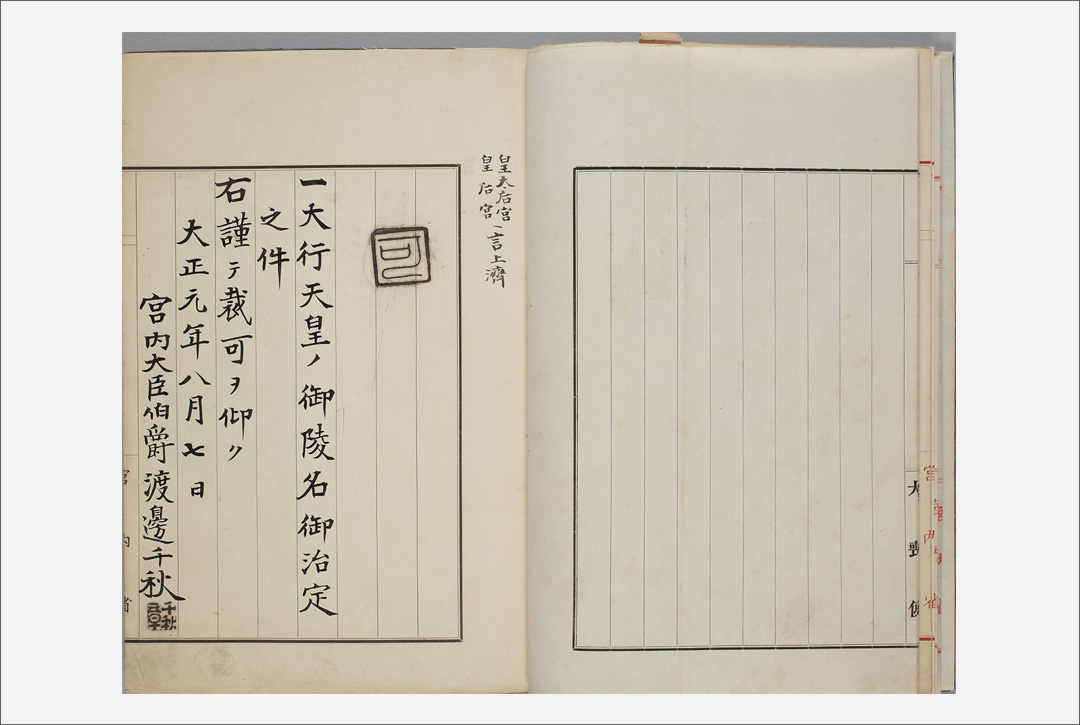 大喪使
皇太后宮
皇后宮
言上濟
可
一大行天皇ノ御陵名御治定
之件
右謹テ裁可ヲ仰ク
大正元年八月七日
宮内大臣伯爵渡邊千秋
千秋
宮内省